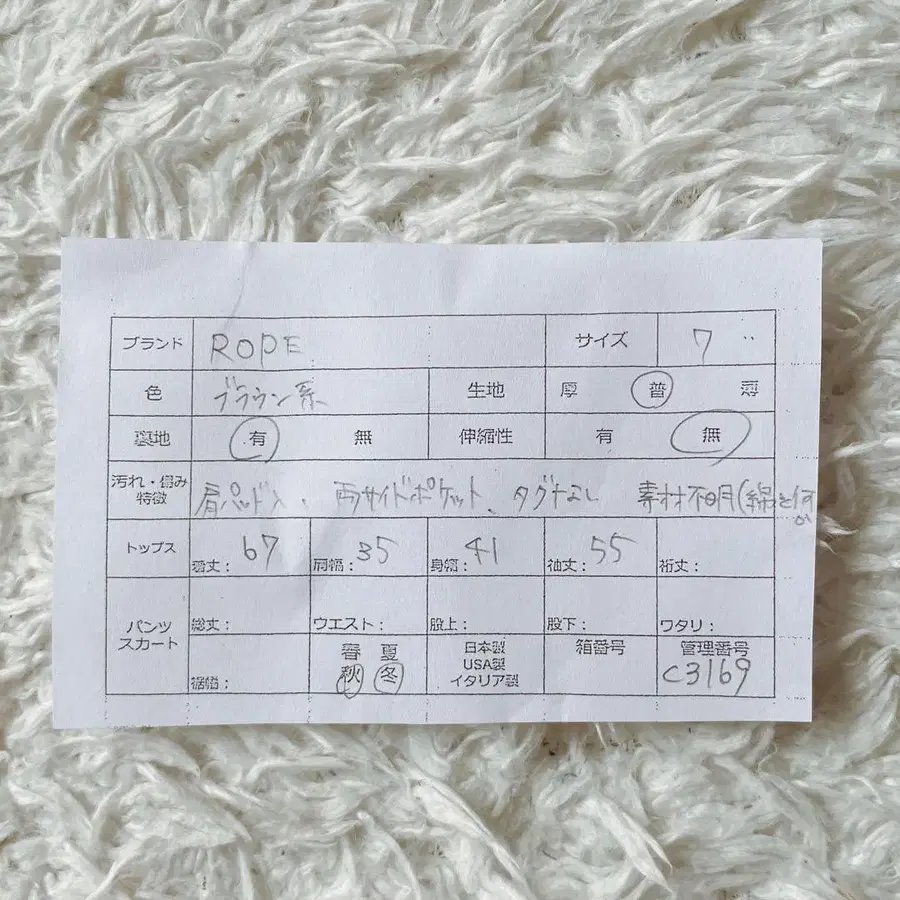 ブランド ROPE サイズ 7
色 ブラウン系 生地 厚 普 薄
裏地 有 無 伸縮性 有 無
汚れ・傷み
特徴 肩パッド入、両サイドポケット、タグナなし 素材不明(綿と何か
トップス 着丈: 67 肩幅: 35 身幅: 41 袖丈: 55 裄丈:
パンツ
スカート 総丈: ウエスト: 股上: 股下: ワタリ:
裾幅: 春 夏
秋 冬
日本製
USA製
イタリア製
箱番号
管理番号
C3169